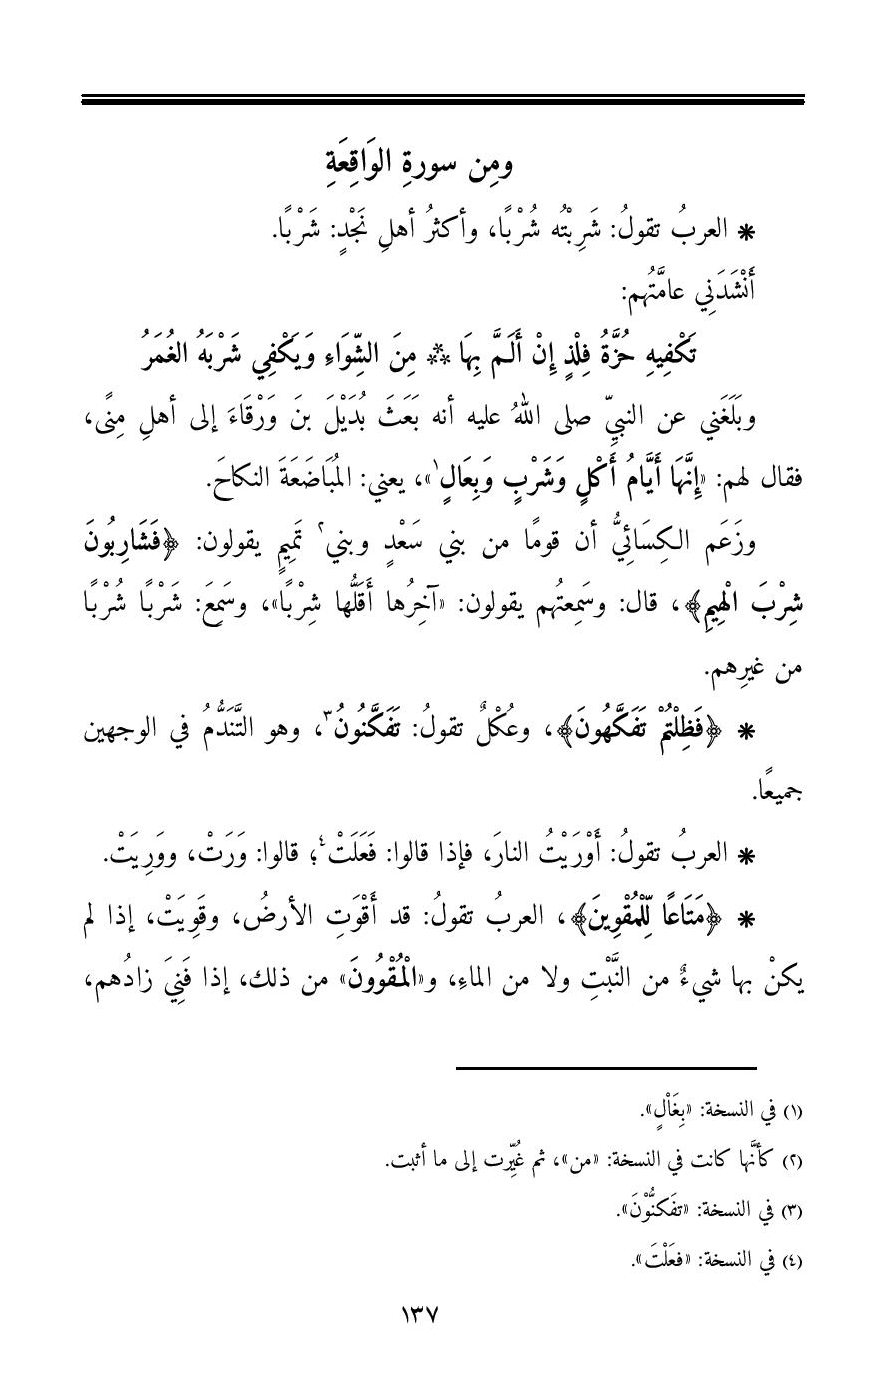 ومِن سورةِ الوَاقِعَةِ
* العربُ تقولُ: شَرِبْتُه شُرْبًا، وأكثرُ أهلِ نَجْدٍ: شَرْبًا.
أَنْشَدَنِي عامَّتُهم:
تَكْفِيهِ حُزَّةُ فِلْذٍ إِنْ أَلَمَّ بِهَا ** مِنَ الشِّوَاءِ وَيَكْفِي شَرْبَهُ الغُمَرُ
وبَلَغَني عن النبيِّ صلى اللهُ عليه أنه بَعَثَ بُدَيْلَ بنَ وَرْقَاءَ إلى أهلِ مِنًى،
فقال لهم: «إِنَّهَا أَيَّامُ أَكْلٍ وَشَرْبٍ وَبِعَالٍ١»، يعني: المُبَاضَعَةَ النكاحَ.
وزَعَم الكِسَائِيُّ أن قومًا من بني سَعْدٍ وبني٢ تَمِيمٍ يقولون: ﴿فَشَارِبُونَ
شِرْبَ الْهِيمِ﴾، قال: وسَمِعتُهم يقولون: «آخِرُها أَقَلُّها شِرْبًا»، وسَمِعَ: شَرْبًا شُرْبًا
من غيرِهم.
* ﴿فَظِلْتُمْ تَفَكَّهُونَ﴾، وعُكْلٌ تقولُ: تَفَكَّنُونُ٣، وهو التَّنَدُّمُ في الوجهين
جميعًا.
* العربُ تقولُ: أَوْرَيْتُ النارَ، فإذا قالوا: فَعَلَتْ٤؛ قالوا: وَرَتْ، ووَرِيَتْ.
* ﴿مَتَاعًا لِّلْمُقْوِينَ﴾، العربُ تقولُ: قد أَقْوَتِ الأرضُ، وقَوِيَتْ، إذا لم
يكنْ بها شيءٌ من النَّبْتِ ولا من الماءِ، و«الْمُقْوُونَ» من ذلك، إذا فَنِيَ زادُهم،
(١) في النسخة: «بِغَاْلٍ».
(٢) كأنَّها كانت في النسخة: «من»، ثم غُيِّرت إلى ما أثبت.
(٣) في النسخة: «تفَكنُّوْنَ».
(٤) في النسخة: «فعَلْتَ».
١٣٧